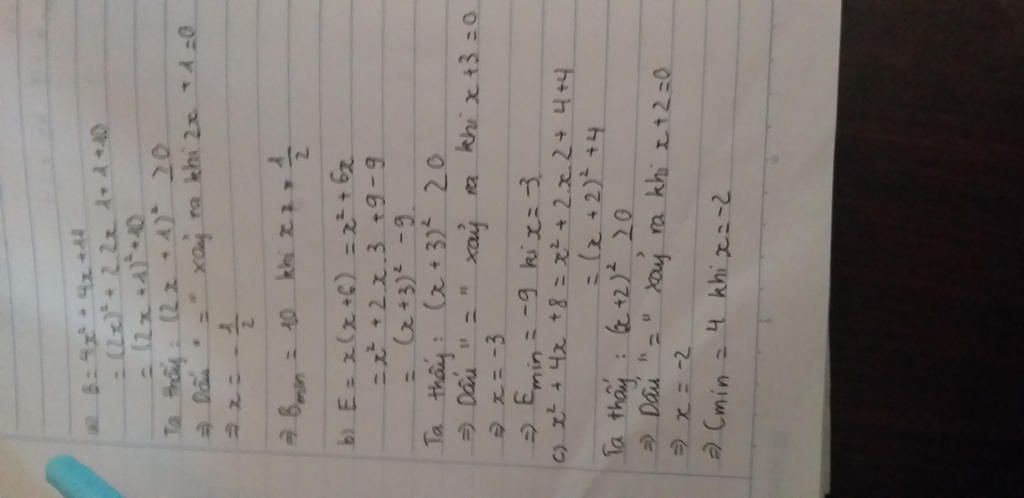 a) B = 4x² + 4x + 11
= (2x)² + 2.2x 1 + 1 + 10
= (2x + 1)² + 10
Ta thấy : (2x + 1)² ≥ 0
⇒ Dấu " = " xảy ra khi 2x + 1 = 0
⇒ x = - 1/2
⇒ Bmin = 10 khi x = - 1/2
b) E = x(x+6) = x² + 6x
= x² + 2x.3 + 9 - 9
= (x+3)² - 9
Ta thấy : (x+3)² ≥ 0
⇒ Dấu " = " xảy ra khi x + 3 = 0
⇒ x = -3
⇒ Emin = -9 khi x = -3
c) x² + 4x + 8 = x² + 2x.2 + 4 + 4
= (x + 2)² + 4
Ta thấy : (x+2)² ≥ 0
⇒ Dấu " = " xảy ra khi x + 2 = 0
⇒ x = -2
⇒ Cmin = 4 khi x = -2